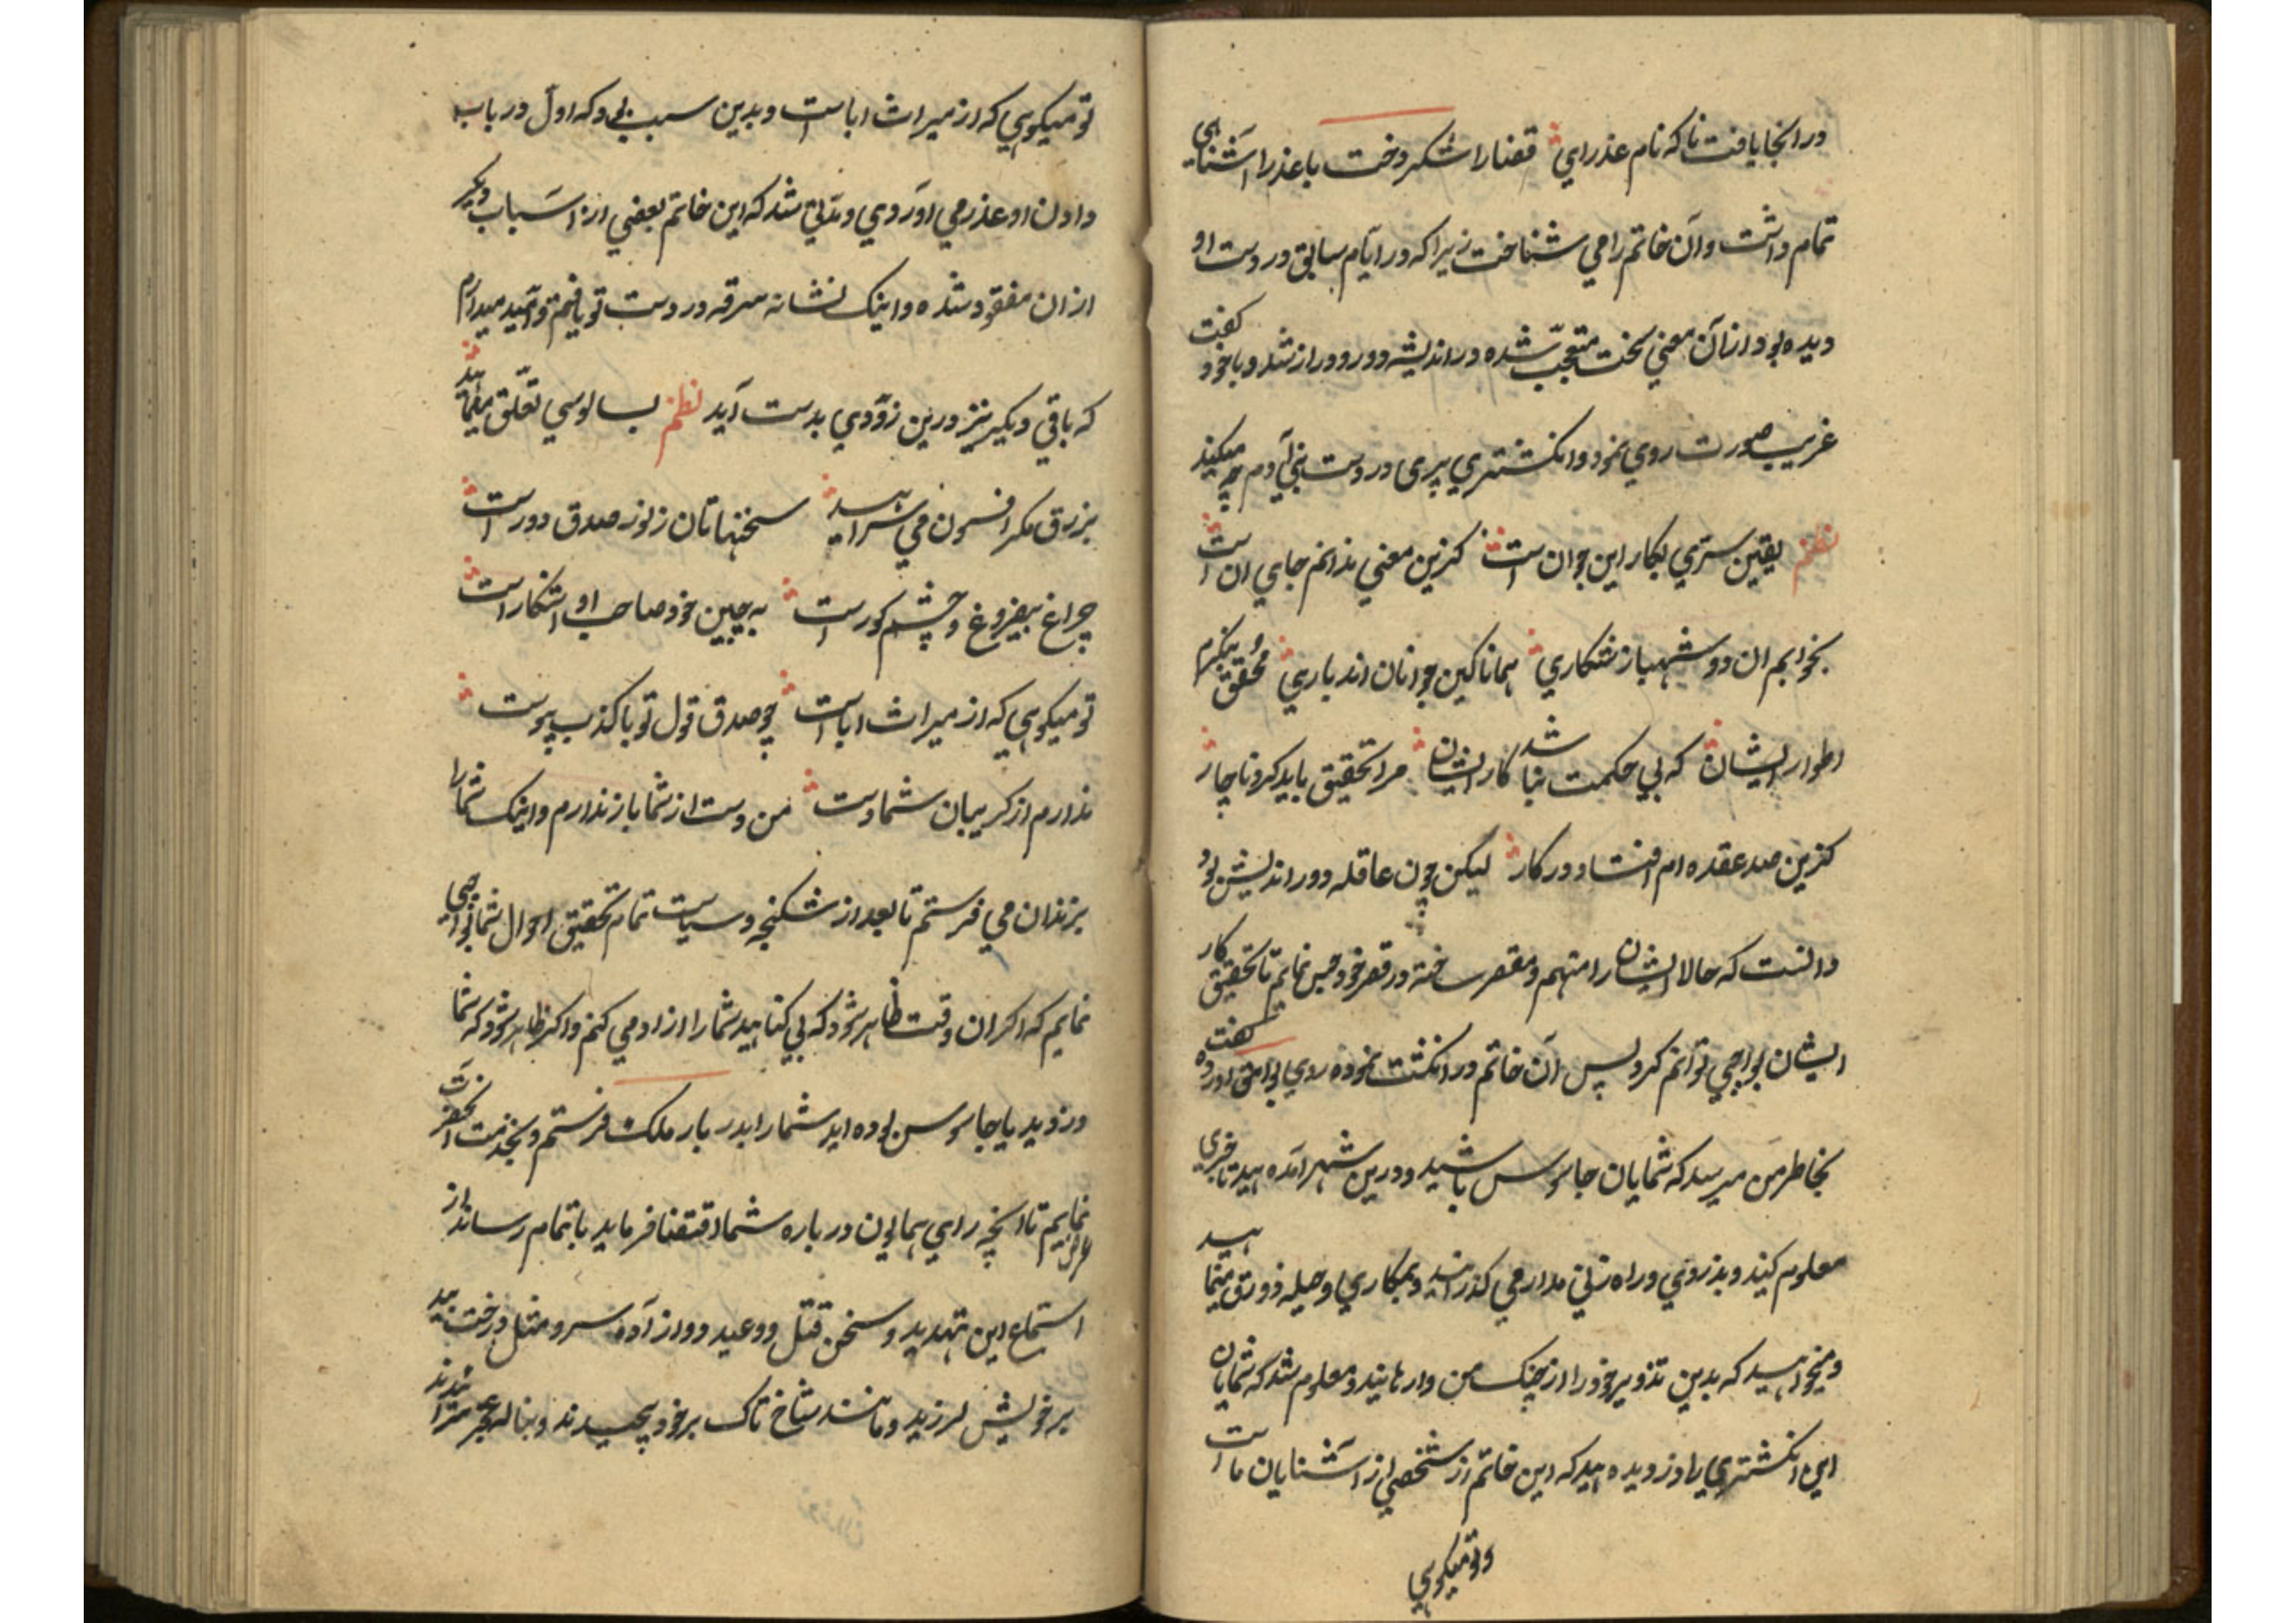 در انجا یافت نا که نام عذرای قضا را شکر وخت با عذرا آشنایی
تمام داشت و آن خاتم را می شناخت زیرا که در ایّام سابق در دست او
دیده بود از آن معنی سخت متعجّب شده در اندیشه دور و دراز شد و با خود گفت
غریب صورت روی نمود و انکشتری پری در دست بنی آدم چه میکند
نظم یقین ستری بکار این جوان است کزین معنی ندانم جای ان است
بخوابم ان دو شهباز شکاری همانا کین جوانان اند باری محقق بنکرم
اطوار ایشان که بی حکمت نباشد کار ایشان مرا تحقیق باید کرد ناچار
کزین صد عقده ام افتاد در کار لیکن چون عاقله دور اندیش بود
دانست که حالا ایشان را متهم و مقصر ساخته در قصر خود حبس نمایم تا تحقیق کار
ایشان بواجبی توانم کرد پس آن خاتم در انکشت نموده روی بوامق اورده گفت
بخاطر من میرسد که شمایان جاسوس باشید و درین شهر امده اید تا خبری
معلوم کنید و بدزدی و راه زنی مدار می گذرانید و بمکاری و حیله و زرق مینمایید
و میخواهید که بدین تزویر خود را از چنک من وارهانید و معلوم شد که شمایان
این انکشتری را دزدیده اید که این خاتم از شخصی از آشنایان ما است
و تو میکویی
تو میکویی که از میراث ابا است و بدین سبب بود که اول در باب
دادن او عذر می اوردی و مدّتی شد که این خاتم بعضی از اسباب دیکر
از ان مفقود شده و اینک نشانه سرقه در دست تو یافتم و امید میدارم
که باقی دیکر نیز درین زودی بدست آید نظم بسالوسی تعلّق مینمایید
بزرق و مکر افسون می سرایید سخنهاتان ز نور صدق دور است
چراغ بیفروغ و چشم کور است به جیبن خود صاحب او اشکار است
تو میکویی که از میراث ابا است چو صدق قول تو با کذب پیوست
ندارم از کریبان شما دست من دست از شما باز ندارم و اینک شما را
بزندان می فرستم تا بعد از شکنجه و سیاست تمام تحقیق احوال شما بواجبی
نمایم که اکر ان وقت ظاهر شود که بی کناهید شما را ازاد می کنم و اکر ظاهر شود که شما
دزدید یا جاسوس بوده اید شما را بدربار ملک فرستم و بخدمت انحضرت
عرض نمایم تا انچه رای همایون در باره شما اقتضا فرماید باتمام رساند از
استماع این تهدید و سخن قتل و وعید دو ازاده سرو مثل درخت بید
بر خویش لرزید و مانند شاخ تاک بر خود پیچیدند و بناله عجز سرا شدند